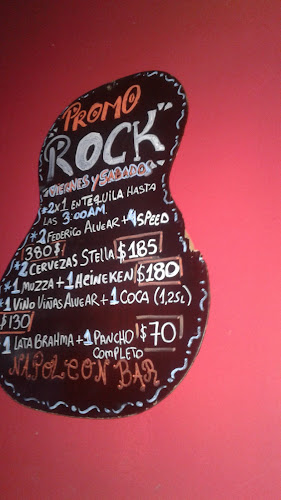 PROMO
"ROCK"
VIERNES Y SABADOS
*2x1 EN TEQUILA HASTA
LAS 3:00AM.
*2 FEDERICO ALVEAR + 4 SPEED
380$
*2 CERVEZAS STELLA $185
*1 MUZZA + 1 HEINEKEN $180
*1 VINO VIÑAS ALVEAR + 1 COCA (1,25L)
$130
1 LATA BRAHMA + 1 PANCHO $70
COMPLETO
NAPOLEON BAR